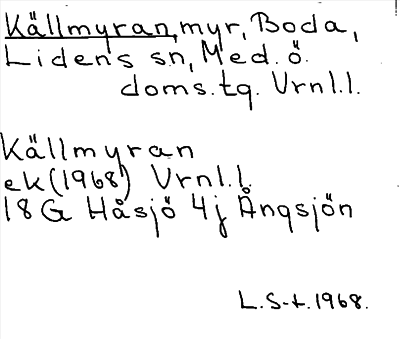 Källmyran, myr, Boda,
Lidens sn, Med. ö.
doms.tg. Vrnl.l.
Källmyran
ek (1968) Vrnl.l.
18G Håsjö 4j Ångsjön
L.S-t. 1968.